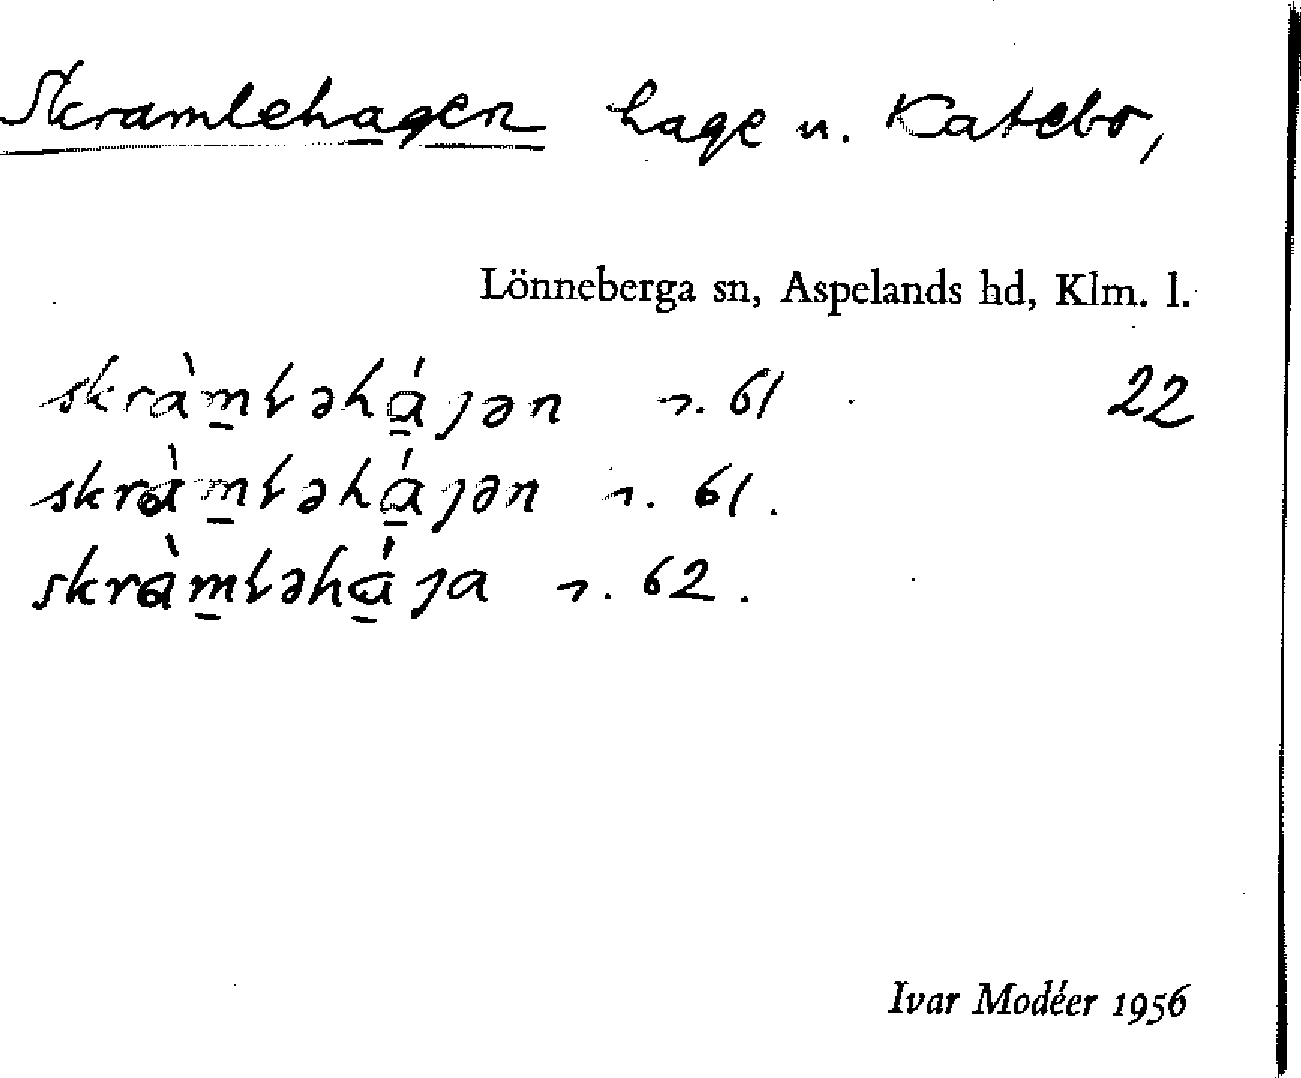 Skramlehagen hage u. Katebo,
Lönneberga sn, Aspelands hd, Klm. l.
skràm̠ɫəhá̠ȷən 61 22
skràm̠ɫəhá̠ȷən 61.
skràm̠ɫəhá̠ȷa 62.
Ivar Modéer 1956